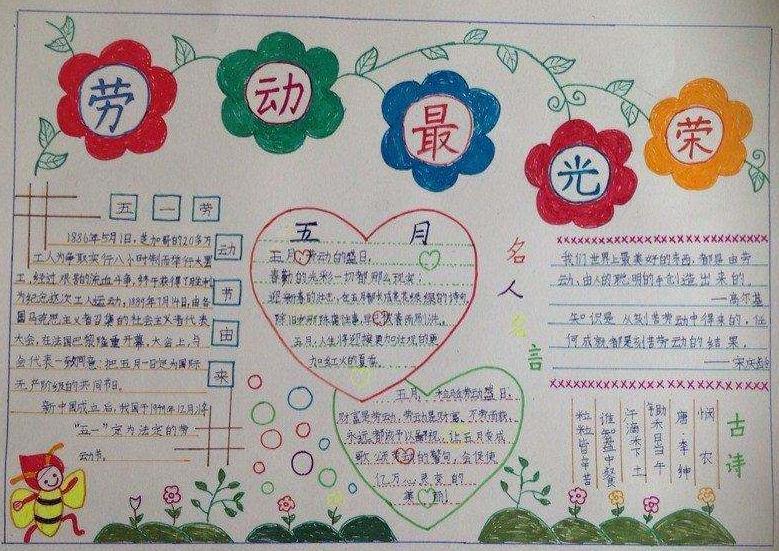 劳动最光荣
五一劳动节由来
1886年5月1日，芝加哥的20多万
工人为争取实行八小时制而举行大罢
工，经过艰苦的流血斗争，终于获得了胜利
为纪念这次工人运动，1889年7月14日，由各
国马克思主义者召集的社会主义者代表
大会，在法国巴黎隆重开幕，大会上，与
会代表一致同意：把五月一日定为国际
无产阶级的共同节日。
新中国成立后，我国于1949年12月将
“五一”定为法定的劳
动节。
五月
五月，劳动的盛日，
春勤的光彩一切都那么现实；
五月，人生将迎接更加壮观的更
加红火的夏季。
五月，
财富是劳动，劳动是财富，不劳而获，
让五月变成
歌颂
亿万心灵变的
美丽！
名人名言
我们世界上最美好的东西，都是由劳
动、由人的聪明的手创造出来的。
——高尔基
知识是从刻苦劳动中得来的，任
何成就都是刻苦劳动的结果。
——宋庆龄
古诗
悯农
唐 李绅
锄禾日当午
汗滴禾下土
谁知盘中餐
粒粒皆辛苦